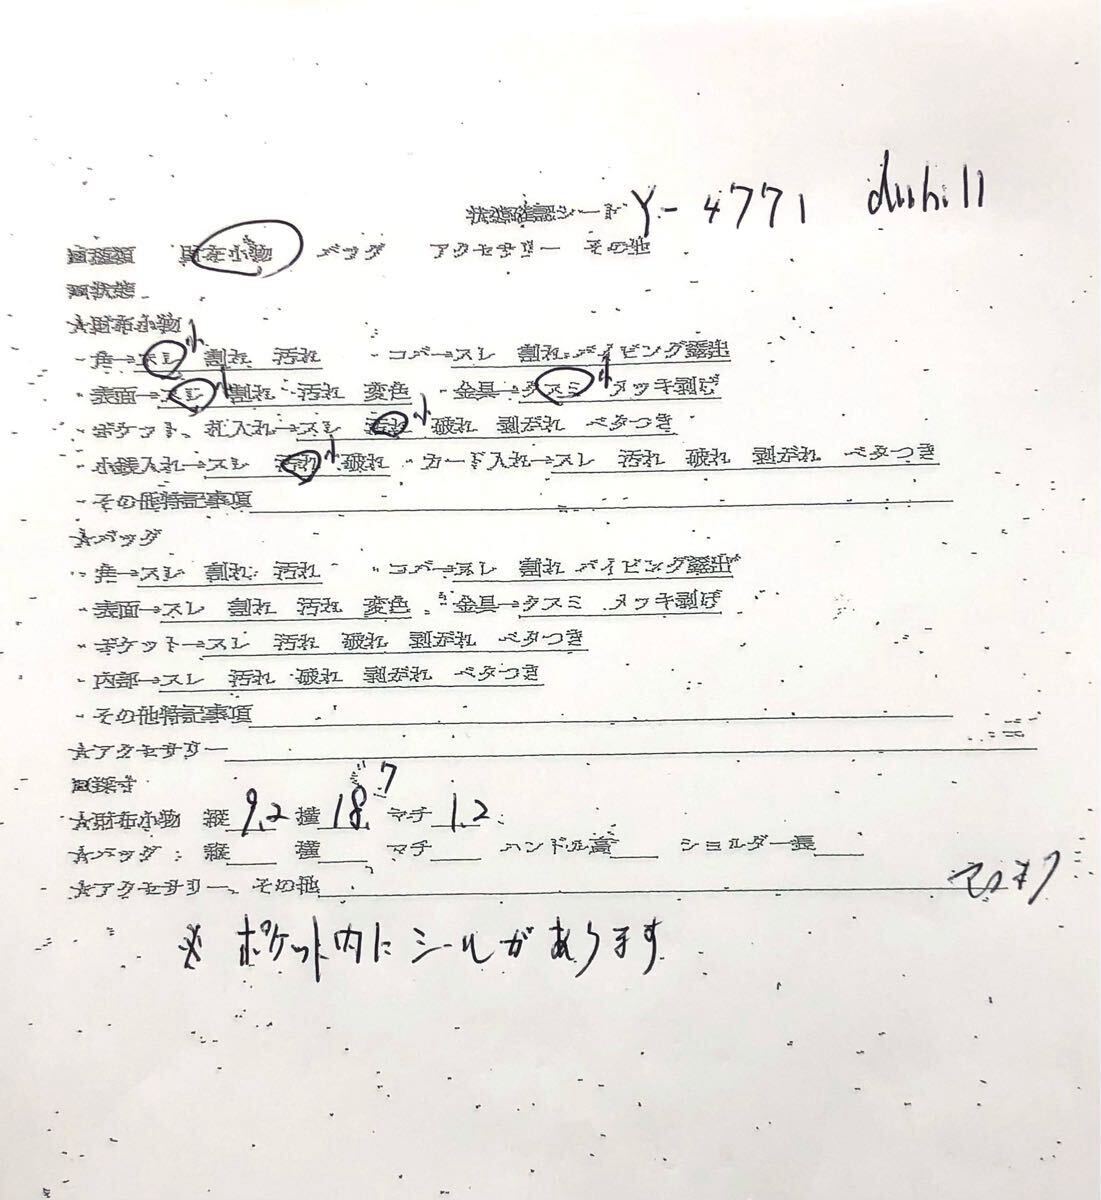 状態確認シード Y-4771 duhill
■種類 財布小物 バッグ アクセサリー その他
■状態
★財布小物
・角→スレ小 割れ 汚れ ・コバ→スレ 割れ パイピング露出
・表面→スレ小 割れ 汚れ 変色 ・金具→クスミ小 メッキ剥げ
・ポケット、札入れ→スレ 汚れ小 破れ 剥がれ ベタつき
・小銭入れ→スレ 汚れ小 破れ ・カード入れ→スレ 汚れ 破れ 剥がれ ベタつき
・その他特記事項
★バッグ
・角→スレ 割れ 汚れ ・コバ→スレ 割れ パイピング露出
・表面→スレ 割れ 汚れ 変色 ・金具→クスミ メッキ剥げ
・ポケット→スレ 汚れ 破れ 剥がれ ベタつき
・内部→スレ 汚れ 破れ 剥がれ ベタつき
・その他特記事項
★アクセサリー
■採寸
★財布小物 縦 9.2 横 18.7 マチ 1.2
★バッグ 縦 横 マチ ハンドル高 ショルダー長
★アクセサリー、その他
※ ポケット内にシールがあります